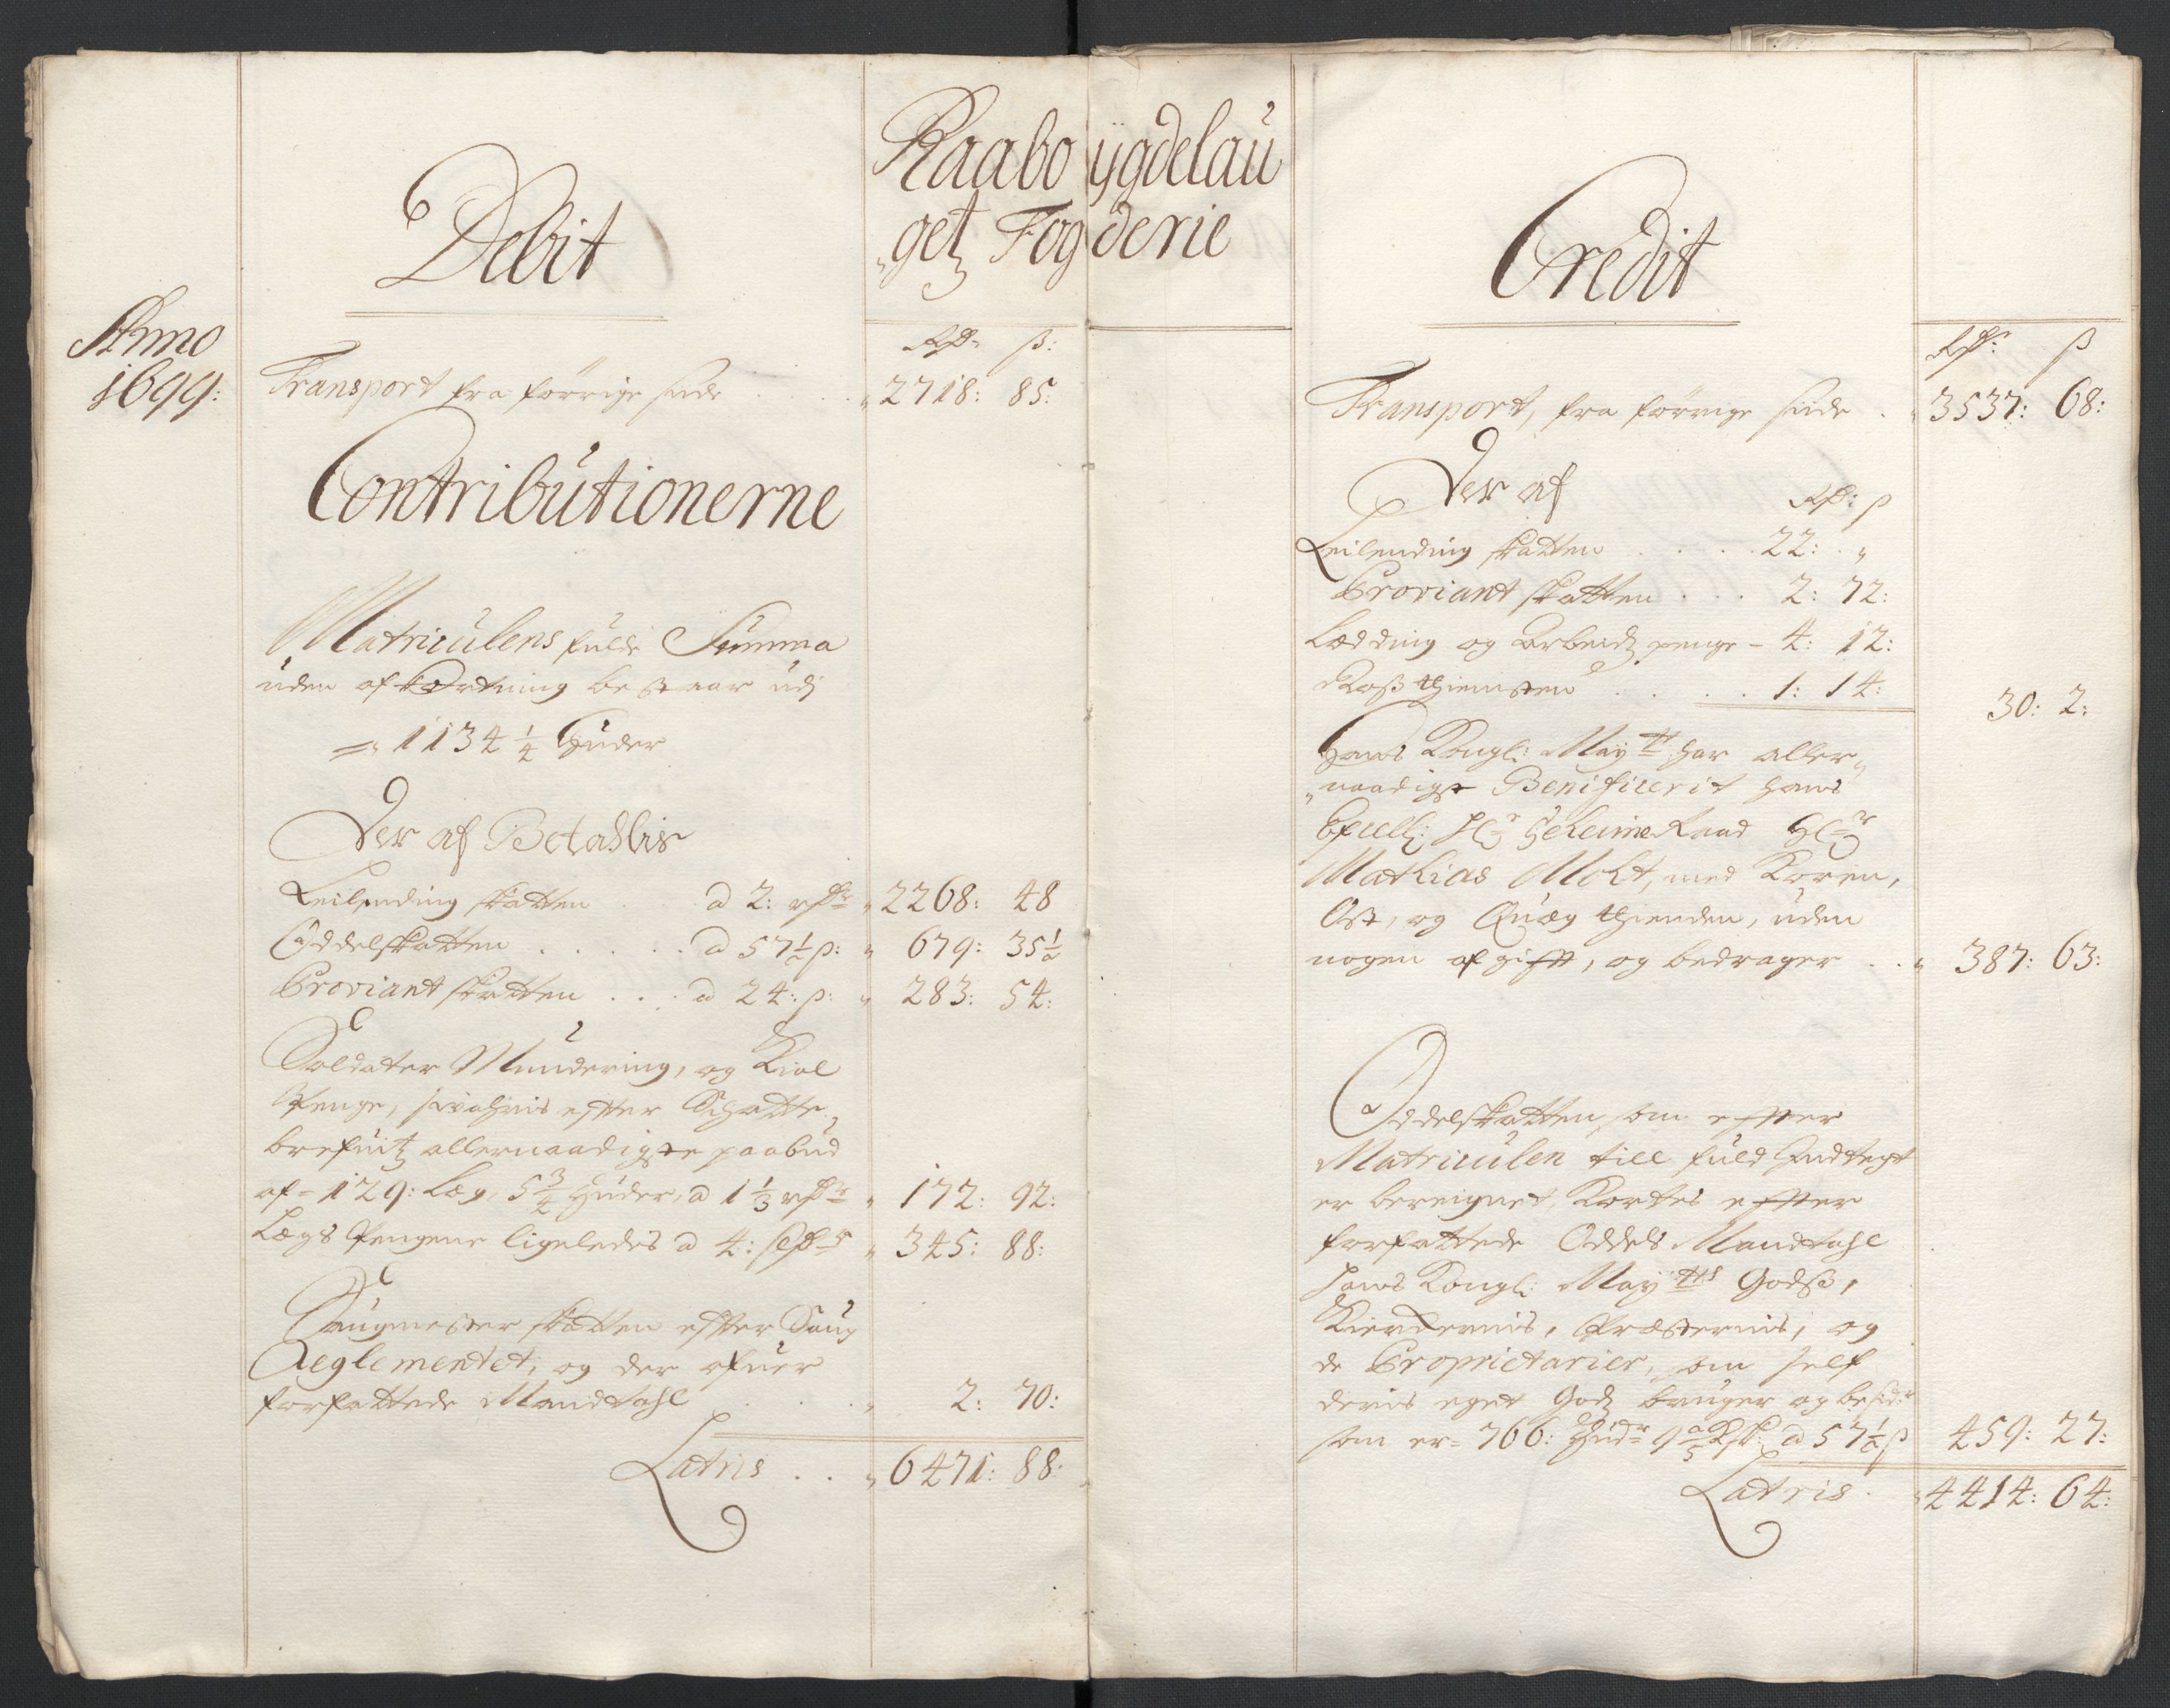 Raaboÿgdelau
„getz Fogderie
Debit
Anno
1699:
Rdr ß:
Transport fra forrige side . . . . „ 2718: 85:
Contributionerne
Matriculens fulde Summa
uden afkortning bestaar udj
= 1134 1/4 Huder
Der af Betahlis
Leilending skatten . . a 2: rdr „ 2268: 48
Oddelskatten . . . . . a 57 1/2 ß: „ 679: 35 1/2
Proviant skatten . . . a 24: ß: „ 283: 54:
Soldater Mundering, og Kiol
Penge, sswahris effter Schatte„
brefuitz allernaadigste paabud
af = 129: Læg, 5 3/4 Huder, a 1 1/3 rdr „ 172: 92:
Lægs Pengene ligeledes a 4: „ 345: 88:
Saugmester skatten effter Saug
Reglementet, og der ofuer
forfattede Mandtahl . . . „ 2: 70:
Latris . . „ 6471: 88:
Credit
Rdr: ß
Transport, fra forrige side . „ 3537: 68:
Der af Rdr: ß
Leilending skatten . . . . 22: „
Proviant skatten . . . 2: 72:
Lædding og Arbeidz penge - 4: 12:
Roß thienisten . . . . 1: 14:
30: 2:
Hans Kongl: Maytt har aller„
„naadigst Benificerit hans
Excell: Hr GeheimeRaad Hr
Mathias Moht, med Koren,
Ost, og Quæg thienden, uden
nogen afgifft, og bedrager . . „ 387: 63:
Oddelskatten, som effter
Matriculen till fuld Indtegt
er bereignet, Kortes effter
forfattede Oddels Mandtahl
Hans Kongl: Maytts Godß,
Kierckernis, Præsternis, og
de Proprietarier, som self
deris eget Godz bruger og besidr
som er = 766: Hudr 9 2/5 a 57 1/2 ß 459: 27:
Latris . „ 4414: 64: